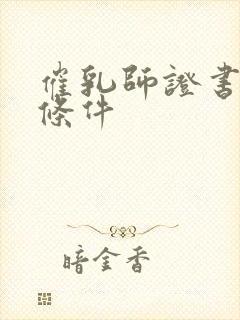 催乳師證書
條件
暗金香